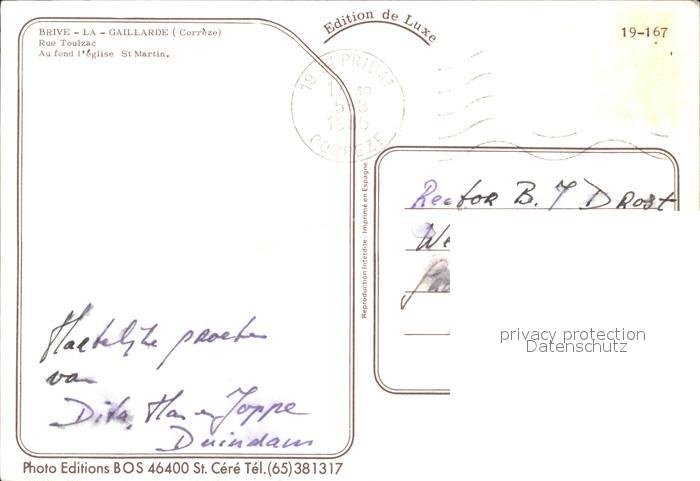 BRIVE - LA - GAILLARDE ( Corrèze)
Rue Toulzac
Au fond l'église St Martin.
Edition de Luxe
19-167
PRIVAT
CORREZE
Reproduction Interdite - Imprimé en Espagne
Rector B. J DROST
We
privacy protection
Datenschutz
Hartelijke groeten
van
Dita, Han en Joppe
Duindam
Photo Editions BOS 46400 St. Céré Tél.(65)381317